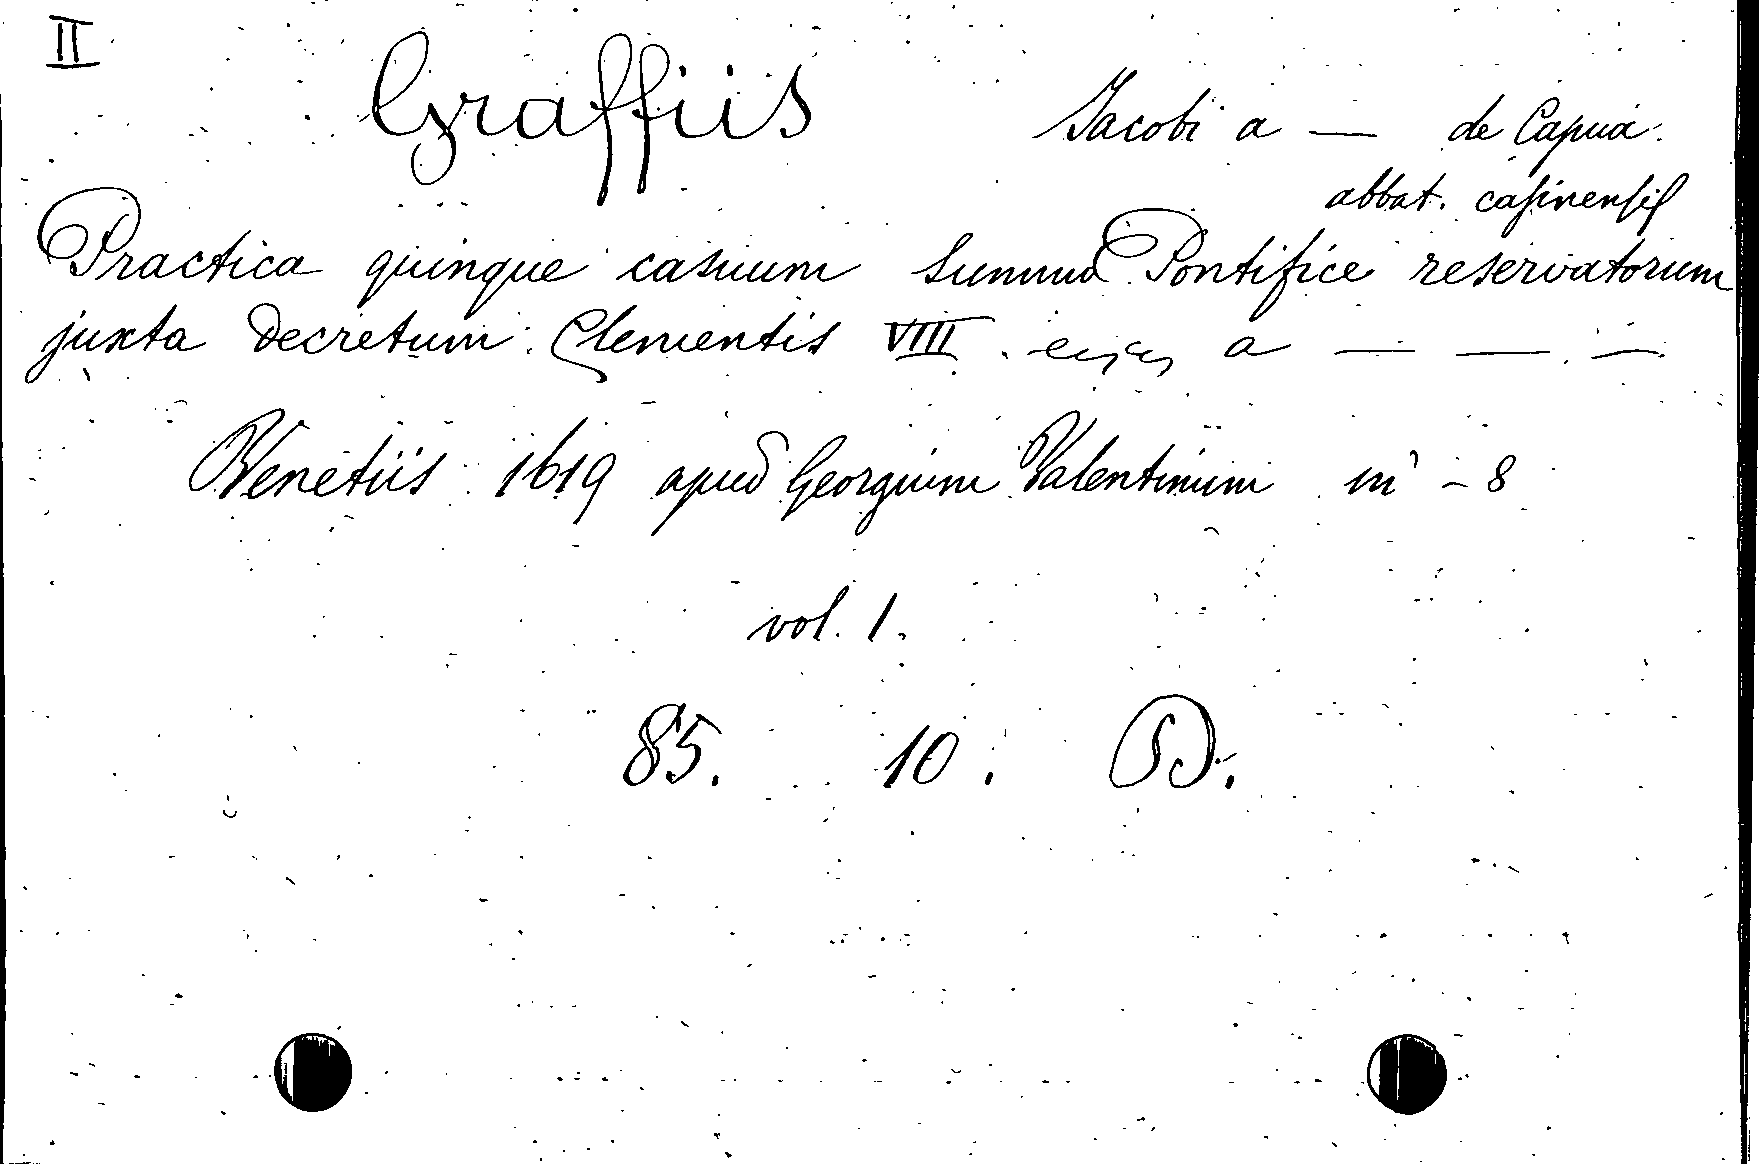 II
Graffiis Jacobi a — de Capua
abbat. casinensis
Practica quinque casuum Summo Pontifice reservatorum
juxta Decretum Clementis VIII. a — — —
Venetiis 1619 apud Georgium Valentinum in - 8
vol. 1.
85. 10. D.